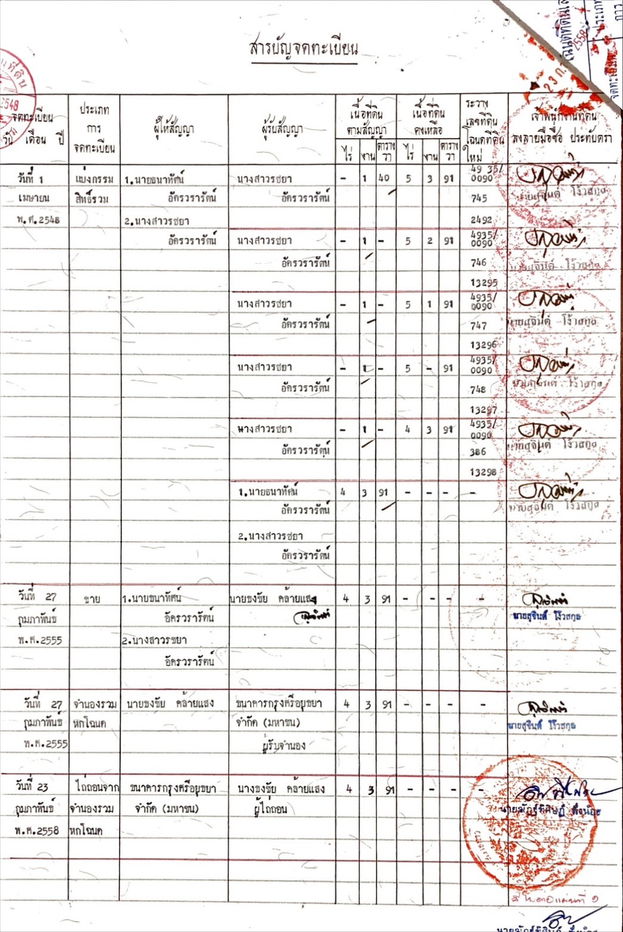 สารบัญจดทะเบียน
จดทะเบียน
วัน เดือน ปี
ประเภท
การ
จดทะเบียน
ผู้ให้สัญญา
ผู้รับสัญญา
เนื้อที่ดิน
ตามสัญญา
ไร่ งาน ตาราง
วา
เนื้อที่ดิน
คงเหลือ
ไร่ งาน ตาราง
วา
ระวาง
เลขที่ดิน
โฉนดที่ดิน
ใหม่
เจ้าพนักงานที่ดิน
ลงลายมือชื่อ ประทับตรา
วันที่ 1 แบ่งกรรม 1.นายธนาทัศน์ นางสาวรชยา - 1 40 5 3 91 4935/
0090
เมษายน สิทธิ์รวม อัครวรารัตน์ อัครวรารัตน์ 745 นายสุจินต์ โง้วสกุล
พ.ศ.2548 2.นางสาวรชยา 2492
อัครวรารัตน์ นางสาวรชยา - 1 - 5 2 91 4935/
0090
อัครวรารัตน์ 746 นายสุจินต์ โง้วสกุล
13295
นางสาวรชยา - 1 - 5 1 91 4935/
0090
อัครวรารัตน์ 747 นายสุจินต์ โง้วสกุล
13296
นางสาวรชยา - 1 - 5 - 91 4935/
0090
อัครวรารัตน์ 748 นายสุจินต์ โง้วสกุล
13297
นางสาวรชยา - 1 - 4 3 91 4935/
0090
อัครวรารัตน์ 386 นายสุจินต์ โง้วสกุล
13298
1.นายธนาทัศน์ 4 3 91 - - - -
อัครวรารัตน์ นายสุจินต์ โง้วสกุล
2.นางสาวรชยา
อัครวรารัตน์
วันที่ 27 ขาย 1.นายธนาทัศน์ นายธงชัย คล้ายแสง 4 3 91 - - - -
กุมภาพันธ์ อัครวรารัตน์ นายสุจินต์ โง้วสกุล
พ.ศ.2555 2.นางสาวรชยา
อัครวรารัตน์
วันที่ 27 จำนองรวม นายธงชัย คล้ายแสง ธนาคารกรุงศรีอยุธยา 4 3 91 - - - -
กุมภาพันธ์ หกโฉนด จำกัด (มหาชน) นายสุจินต์ โง้วสกุล
พ.ศ.2555 ผู้รับจำนอง
วันที่ 23 ไถ่ถอนจาก ธนาคารกรุงศรีอยุธยา นางธงชัย คล้ายแสง 4 3 91 - - - -
กุมภาพันธ์ จำนองรวม จำกัด (มหาชน) ผู้ไถ่ถอน
พ.ศ.2558 หกโฉนด